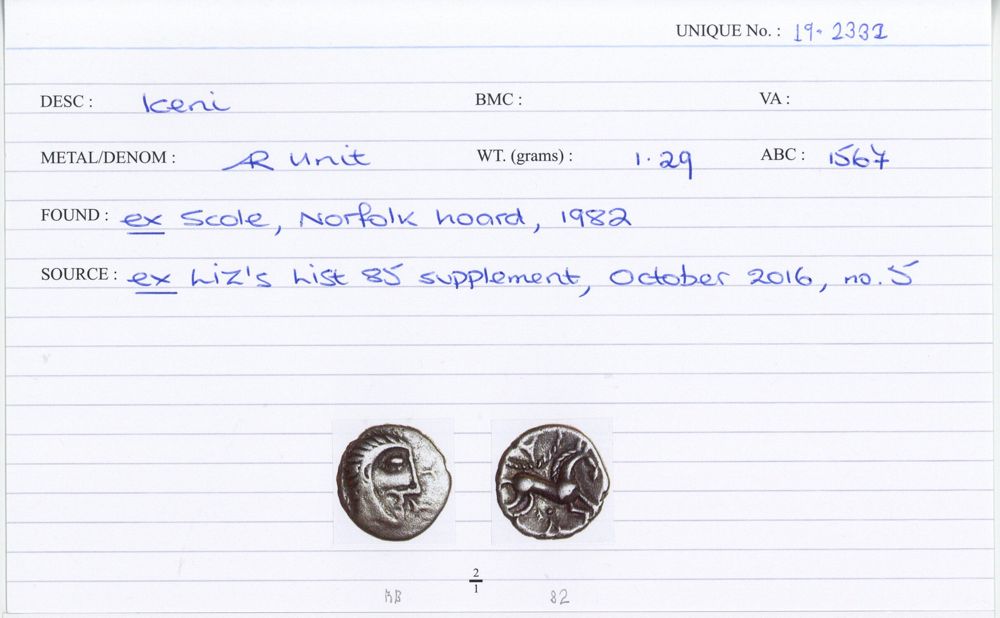 UNIQUE No. : 19. 2331
DESC : Iceni BMC : VA :
METAL/DENOM : AR Unit WT. (grams) : 1.29 ABC : 1567
FOUND : ex Scole, Norfolk hoard, 1982
SOURCE : ex Liz's List 85 supplement, October 2016, no. 5
2
1
82